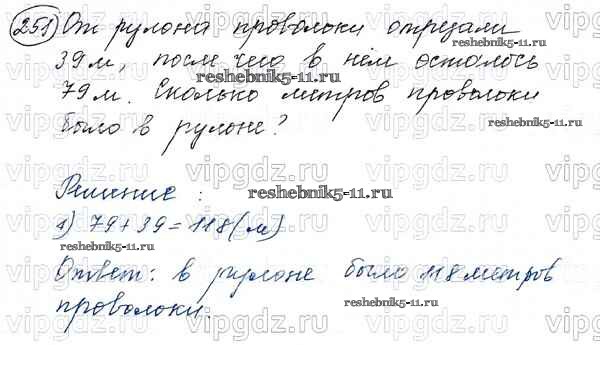 251 От рулона проволоки отрезали
39 м, после чего в нём осталось
reshebnik5-11.ru
79 м. Сколько метров проволоки
было в рулоне?
reshebnik5-11.ru
vipgdz.ru vipgdz.ru vipgdz.ru
Решение:
reshebnik5-11.ru
1) 79+39=118(м)
reshebnik5-11.ru
Ответ: в рулоне было 118 метров
проволоки.
reshebnik5-11.ru
vipgdz.ru vipgdz.ru vipgdz.ru